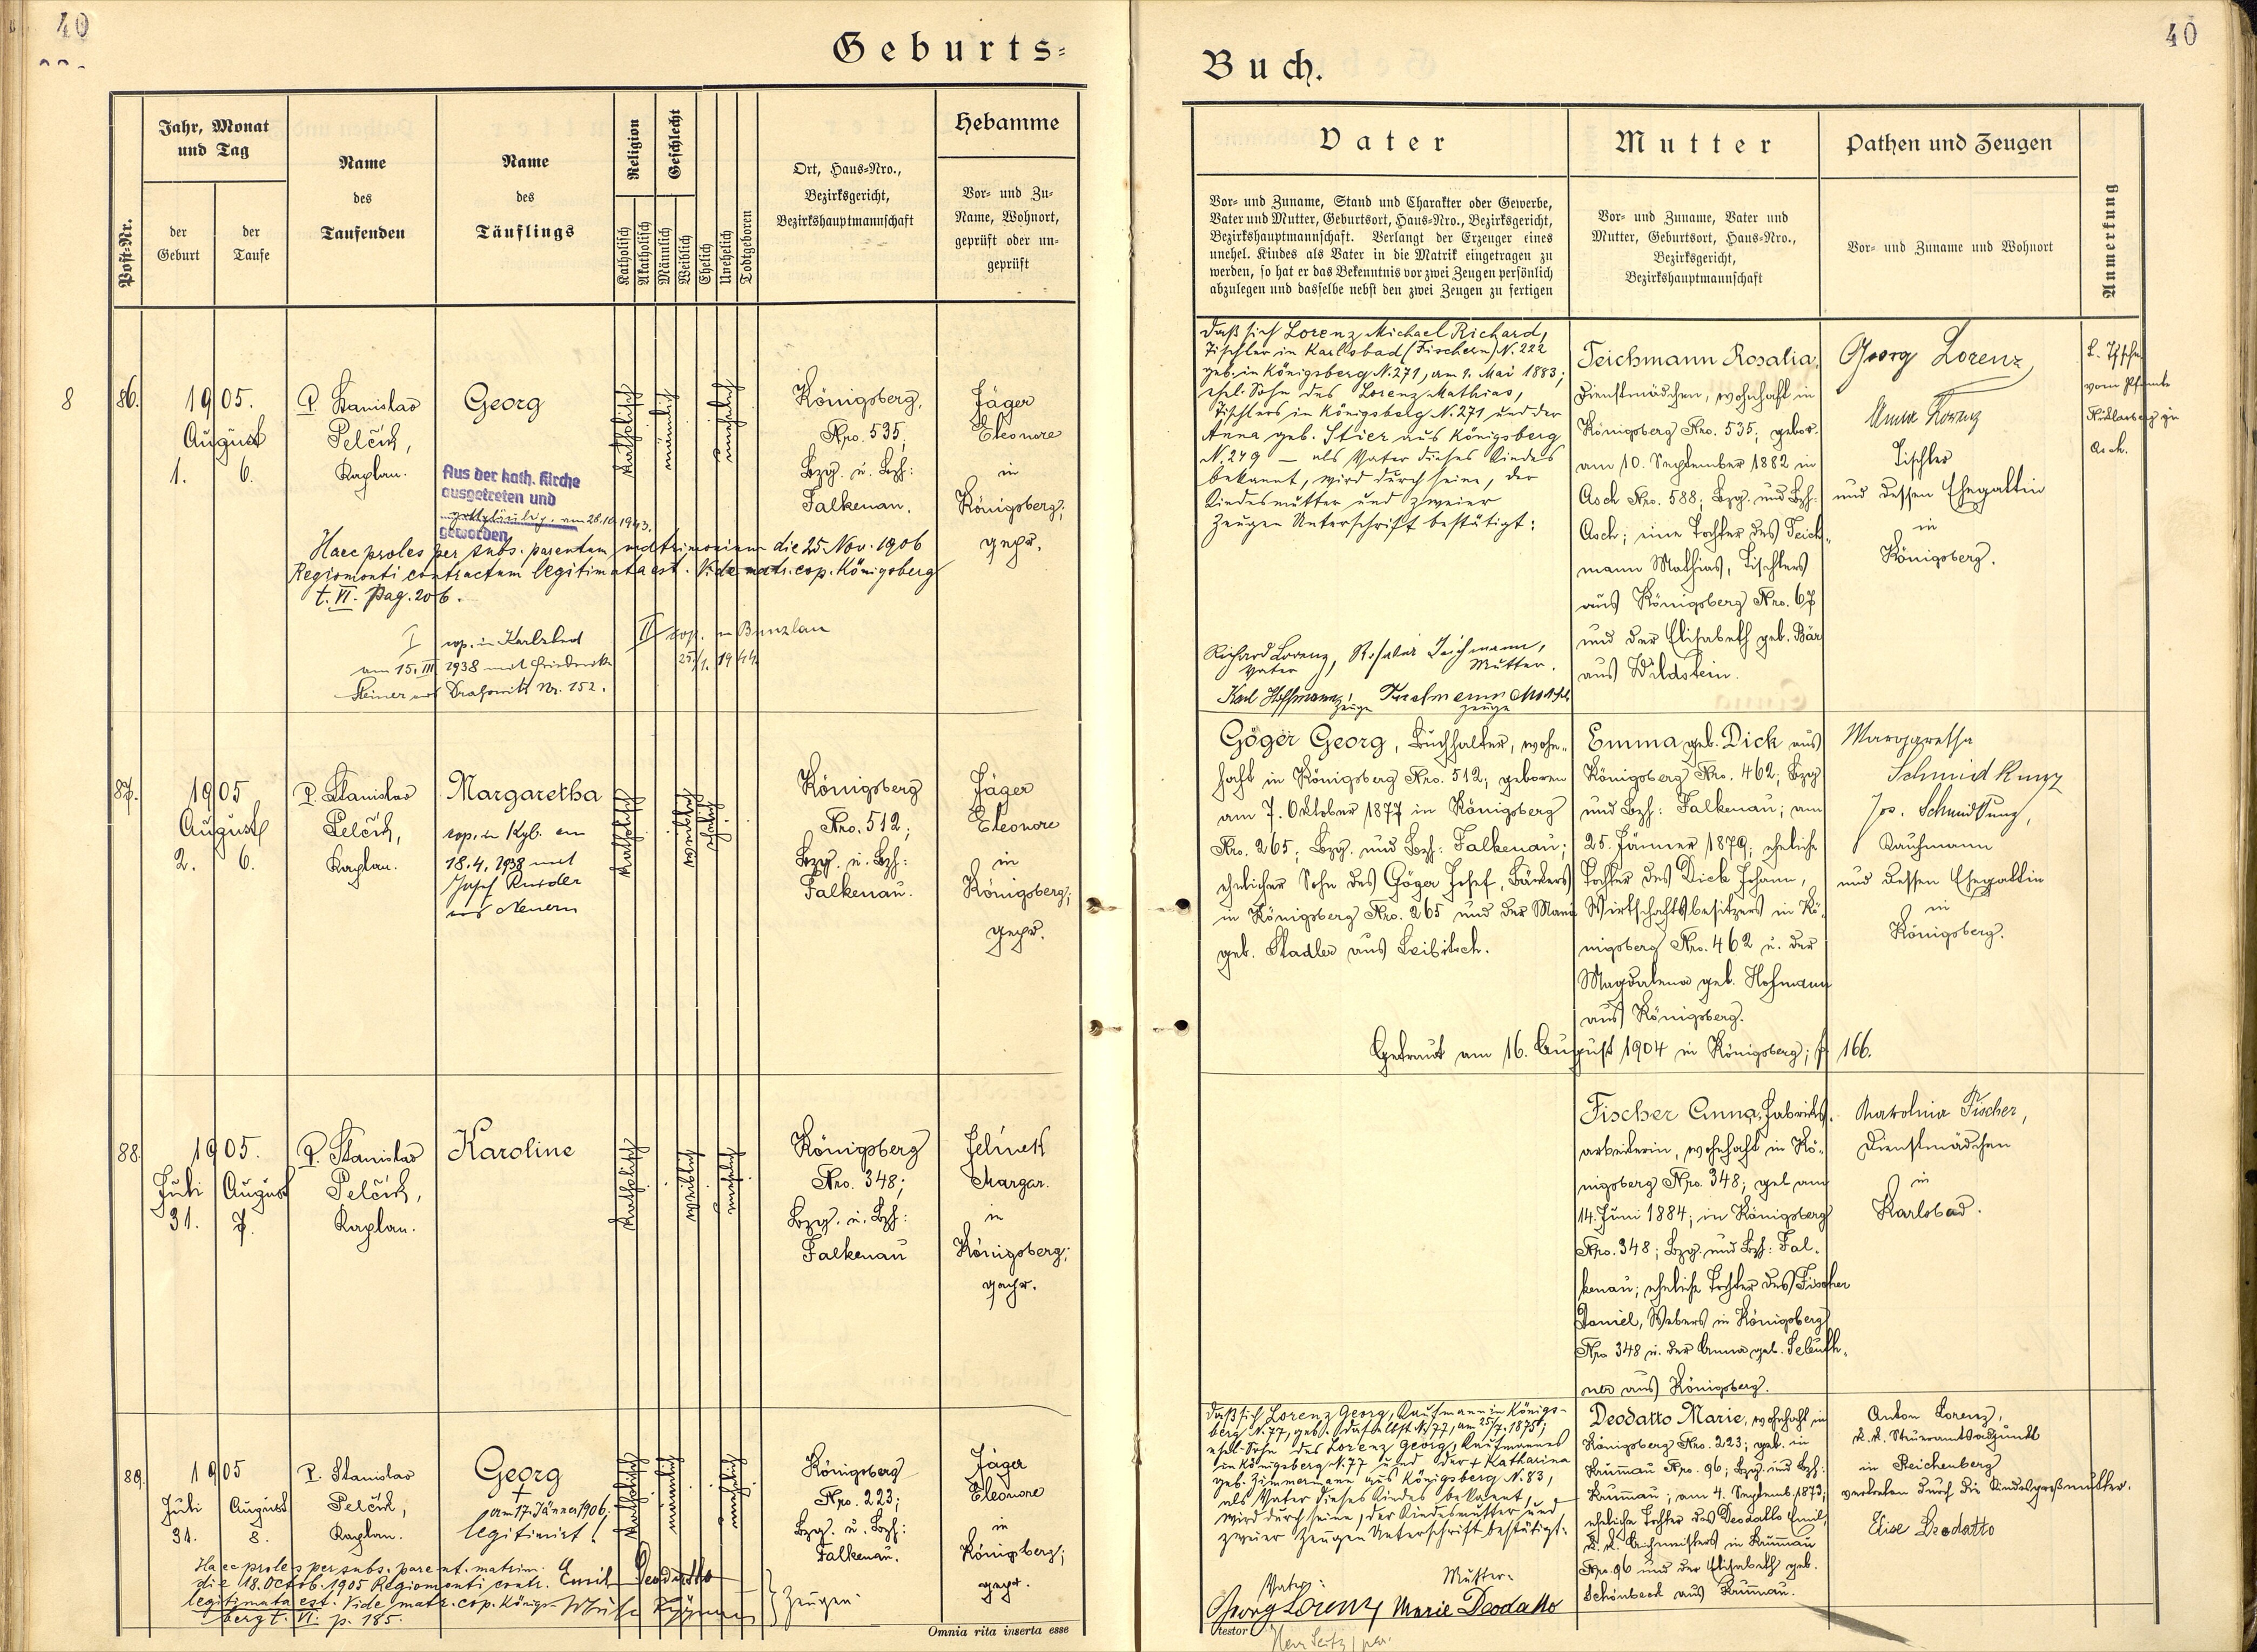 40
40
Geburts=
Buch.
Post-Nr.
Jahr, Monat
und Tag
der
Geburt
der
Taufe
Name
des
Taufenden
Name
des
Täuflings
Religion
Katholisch
Akatholisch
Geschlecht
Männlich
Weiblich
Ehelich
Unehelich
Todtgeboren
Ort, Haus=Nro.,
Bezirksgericht,
Bezirkshauptmannschaft
Hebamme
Vor= und Zu=
Name, Wohnort,
geprüft oder un=
geprüft
Vater
Vor= und Zuname, Stand und Charakter oder Gewerbe,
Vater und Mutter, Geburtsort, Haus=Nro., Bezirksgericht,
Bezirkshauptmannschaft. Verlangt der Erzeuger eines
unehel. Kindes als Vater in die Matrik eingetragen zu
werden, so hat er das Bekenntnis vor zwei Zeugen persönlich
abzulegen und dasselbe nebst den zwei Zeugen zu fertigen
Mutter
Vor= und Zuname, Vater und
Mutter, Geburtsort, Haus=Nro.,
Bezirksgericht,
Bezirkshauptmannschaft
Pathen und Zeugen
Vor= und Zuname und Wohnort
Anmerkung
8
86.
1905.
August
1. 6.
P. Stanislav
Pelčik,
Kaplan.
Georg
Aus der kath. Kirche
ausgetreten und
gottgläubig. am 28.10.1943.
geworden
Haec proles per subs. parentum matrimonium die 25. Nov. 1906
Regiomonti contractum legitimata est. Vide matr. cop. Königsberg
t. VI. Pag. 206.
I cop. in Karlsbad
am 15. III 1938 mit
Steiner aus Nr. 152.
II cop. in Bunzlau
25./1. 1944
katholisch
männlich
unehelich
Königsberg,
Nro. 535,
Bzg. u. Bzh:
Falkenau.
Jäger
Eleonore
in
Königsberg;
gepr.
Daß sich Lorenz Michael Richard,
Tischler in Karlsbad (Fischern) N. 222
geb. in Königsberg N. 271, am 9. Mai 1883;
ehel. Sohn des Lorenz Mathias,
Tischlers in Königsberg N. 271 und der
Anna geb. Stier aus Königsberg
N. 249 — als Vater dieses Kindes
bekannt, wird durch seine, der
Kindesmutter und zweier
Zeugen Unterschrift bestätigt:
Richard Lorenz, Rosalia Teichmann,
Vater Mutter.
Karl Hoffmann,
Zeuge Zeuge
Teichmann Rosalia,
Dienstmädchen, wohnhaft in
Königsberg Nro. 535; gebor.
am 10. September 1882 in
Asch Nro. 588; Bzg. und Bzh.
Asch; eine Tochter des Teich=
mann Mathias, Tischlers
aus Königsberg Nro. 67
und der Elisabeth geb. Bär
aus Wildstein.
Georg Lorenz,
Anna Lorenz
Tischler
und dessen Ehegattin
in
Königsberg.
87.
1905
August
2. 6.
P. Stanislav
Pelčik,
Kaplan.
Margaretha
cop. in Kgb. am
18. 4. 1938 mit
Josef
aus Neuern
katholisch
weiblich
ehelich
Königsberg
Nro. 512;
Bzg. u. Bzh:
Falkenau.
Jäger
Eleonore
in
Königsberg;
gepr.
Göger Georg, Buchhalter, wohn=
haft in Königsberg Nro. 512; geboren
am 7. Oktober 1877 in Königsberg
Nro. 265; Bzg. und Bzh: Falkenau;
ehelicher Sohn des Göger Josef, Bäckers
in Königsberg Nro. 265 und der Marie
geb. Stadler aus Leibitsch.
Emma geb. Dick aus
Königsberg Nro. 462; Bzg
und Bzh: Falkenau; am
25. Jänner 1879; eheliche
Tochter des Dick Johann,
Wirtschaftsbesitzers in Kö=
nigsberg Nro. 462 u. der
Magdalena geb. Hofmann
aus Königsberg.
Getraut am 16. August 1904 in Königsberg; p 166.
Margaretha
Schmidkunz
Jos. Schmidkunz,
Kaufmann
und dessen Ehegattin
in
Königsberg.
88.
1905.
Juli August
31. 7.
P. Stanislav
Pelčik,
Kaplan.
Karoline
katholisch
weiblich
unehelich
Königsberg
Nro. 348;
Bzg. u. Bzh:
Falkenau
Jelinek
Margar.
in
Königsberg;
gepr.
Fischer Anna, Fabriks=
arbeiterin, wohnhaft in Kö=
nigsberg Nro. 348; geb am
14. Juni 1884; in Königsberg
Nro. 348; Bzg. und Bzh: Fal=
kenau; eheliche Tochter des Fischer
Daniel, Webers in Königsberg
Nro 348 u. der Anna geb.
ner aus Königsberg.
Karolina Fischer,
Dienstmädchen
in
Karlsbad.
89.
1905
Juli August
31. 8.
P. Stanislav
Pelčik,
Kaplan.
Georg
† am 17. Jänner 1906.
legitimirt!
Haec proles per subs. parent. matrim.
die 18. Octob. 1905 Regiomonti contr.
legitimata est. Vide matr. cop. Königs=
berg t. VI. p. 185.
Emil Deodatto
Zeugen
katholisch
männlich
unehelich
Königsberg
Nro. 223;
Bzg. u. Bzh:
Falkenau.
Jäger
Eleonore
in
Königsberg;
gepr.
Daß sich Lorenz Georg, Kaufmann in Königs=
berg N. 77, geb. daselbst N. 77, am 25/7. 1875;
ehel. Sohn des Lorenz Georg, Kaufmannes
in Königsberg N. 77 und der † Katharina
geb. Zimmermann aus Königsberg N. 83,
als Vater dieses Kindes bekannt,
wird durch seine, der Kindesmutter und
zweier Zeugen Unterschrift bestätigt:
Vater: Mutter:
Georg Lorenz, Marie Deodatto
Deodatto Marie, wohnhaft in
Königsberg Nro. 223; geb. in
Krumau Nro. 96; Bzg. und Bzh:
Krumau; am 4. Septemb. 1873;
eheliche Tochter des Deodatto Emil,
k. k. Aichmeisters in Krumau
Nro. 96 und der Elisabeth geb.
Schönbeck aus Krumau.
Anton Lorenz,
k. k. Steueramtsadjunkt
in Reichenberg
vertreten durch die Kindesgroßmutter.
Elise Deodatto
Omnia rita inserta esse
testor